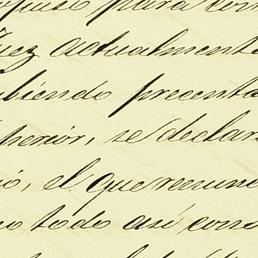 para con
Juez actualmente
biendo presenta
perior, se declar
ió, el que reconoc
todo así cons